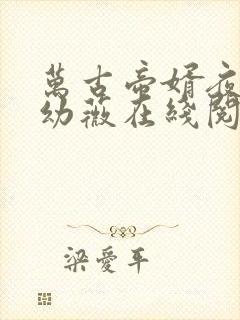 萬古帝婿夜
幼薇在綫閱
梁愛平